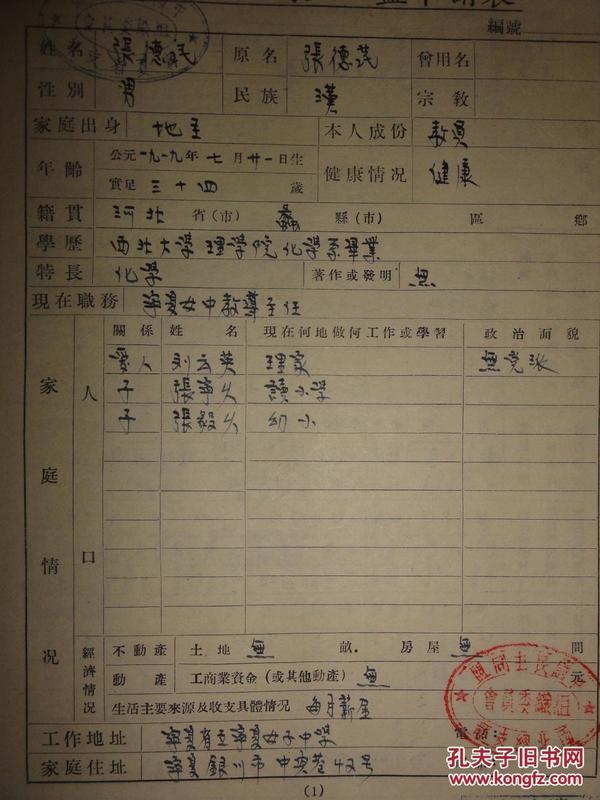 盟申請表
編號
姓名 張德民 原名 張德茂 曾用名
性別 男 民族 漢 宗教
家庭出身 地主 本人成份 教員
年齡 公元一九一九年七月廿一日生 實足三十四歲 健康情况 健康
籍貫 河北省(市) 蠡縣(市) 區 鄉
學歷 西北大學理學院化學系畢業
特長 化學 著作或發明 無
現在職務 寧夏女中教導主任
家庭情况
人口
關係 姓名 現在何地做何工作或學習 政治面貌
愛人 刘云英 理家 無党派
子 張寧久 讀小學
子 張毅久 幼小
經濟情况
不動產 土地 無 畝. 房屋 無 間
動產 工商業資金(或其他動產) 無 元
生活主要來源及收支具體情况 每月薪金
工作地址 寧夏省立寧夏女子中學 電話:
家庭住址 寧夏銀川市中央巷42号
(1)
孔夫子旧书网
www.kongfz.com